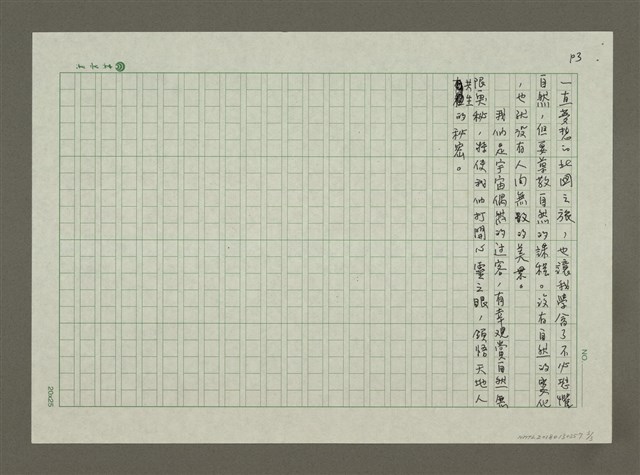 P3
一直夢想的北國之旅，也讓我學會了不必恐懼
自然，但要尊敬自然的課程。沒有自然的變化
，也就沒有人間無數的美景。
我們是宇宙偶然的過客，有幸觀賞自然無
限奧秘，將使我們打開心靈之眼，領悟天地人
共生的秘密。
NO.
20x25